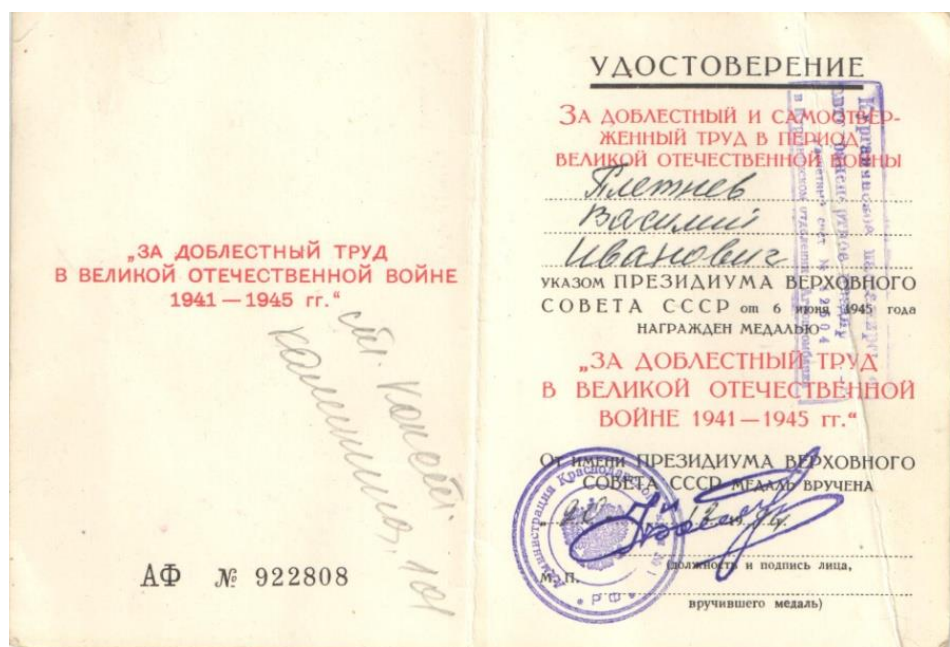 „ЗА ДОБЛЕСТНЫЙ ТРУД
В ВЕЛИКОЙ ОТЕЧЕСТВЕННОЙ ВОЙНЕ
1941 — 1945 гг.“
Калинина, 101
АФ № 922808
УДОСТОВЕРЕНИЕ
ЗА ДОБЛЕСТНЫЙ И САМООТВЕР-
ЖЕННЫЙ ТРУД В ПЕРИОД
ВЕЛИКОЙ ОТЕЧЕСТВЕННОЙ ВОЙНЫ
Плетнев
Василий
Иванович
УКАЗОМ ПРЕЗИДИУМА ВЕРХОВНОГО
СОВЕТА СССР от 6 июня 1945 года
НАГРАЖДЕН МЕДАЛЬЮ
„ЗА ДОБЛЕСТНЫЙ ТРУД
В ВЕЛИКОЙ ОТЕЧЕСТВЕННОЙ
ВОЙНЕ 1941 — 1945 гг.“
ОТ ИМЕНИ ПРЕЗИДИУМА ВЕРХОВНОГО
СОВЕТА СССР МЕДАЛЬ ВРУЧЕНА
М. П.
(должность и подпись лица,
вручившего медаль)
Администрация Краснодарского
РФ